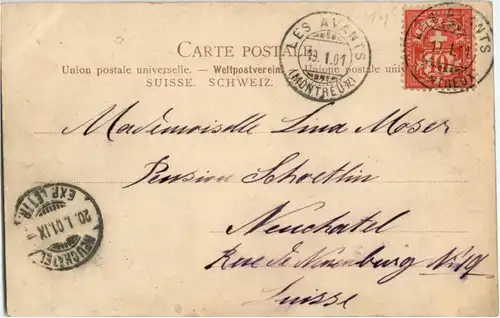 CARTE POSTALE
Union postale universelle. — Weltpostverein. Unione postale universale
SUISSE. SCHWEIZ.
LES AVANTS
19.I.01
(MONTREUX)
Mademoiselle Lina Moser
Pension
Neuchatel
Rue de N° 19
Suisse
NEUCHATEL
20.I.01.IX
EXP. LETTR.